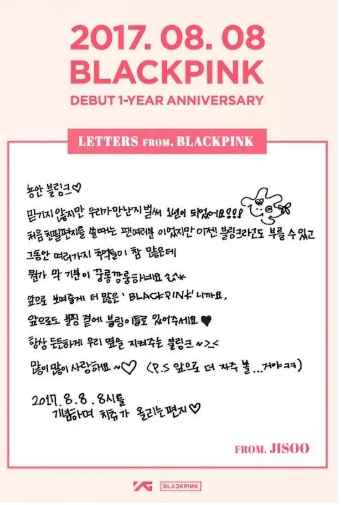 2017. 08. 08
BLACKPINK
DEBUT 1-YEAR ANNIVERSARY
LETTERS FROM. BLACKPINK
블링크♡
믿기지 않지만 우리가 만난지 벌써 1년이 되었어요???
처음 친필편지를 쓸때는 팬여러분 이었지만 이젠 블링크라고도 부를 수 있고
그동안 여러가지 추억들이 참 많은데
뭔가 막 기분이
앞으로 보여줄게 더 많은 'BLACKPINK' 니까요,
앞으로도 블핑 곁에 블링이들로 있어주세요 ♥
항상 든든하게 우리 옆을 지켜주는 블링크 ~>_<
많이많이 사랑해요 ~♡ (P.S 앞으로 더 자주 볼...거야ㅋㅋ)
2017. 8. 8. 8시를
기념하며 지쮸가 올리는편지♡
FROM. JISOO
YG BLACKPINK